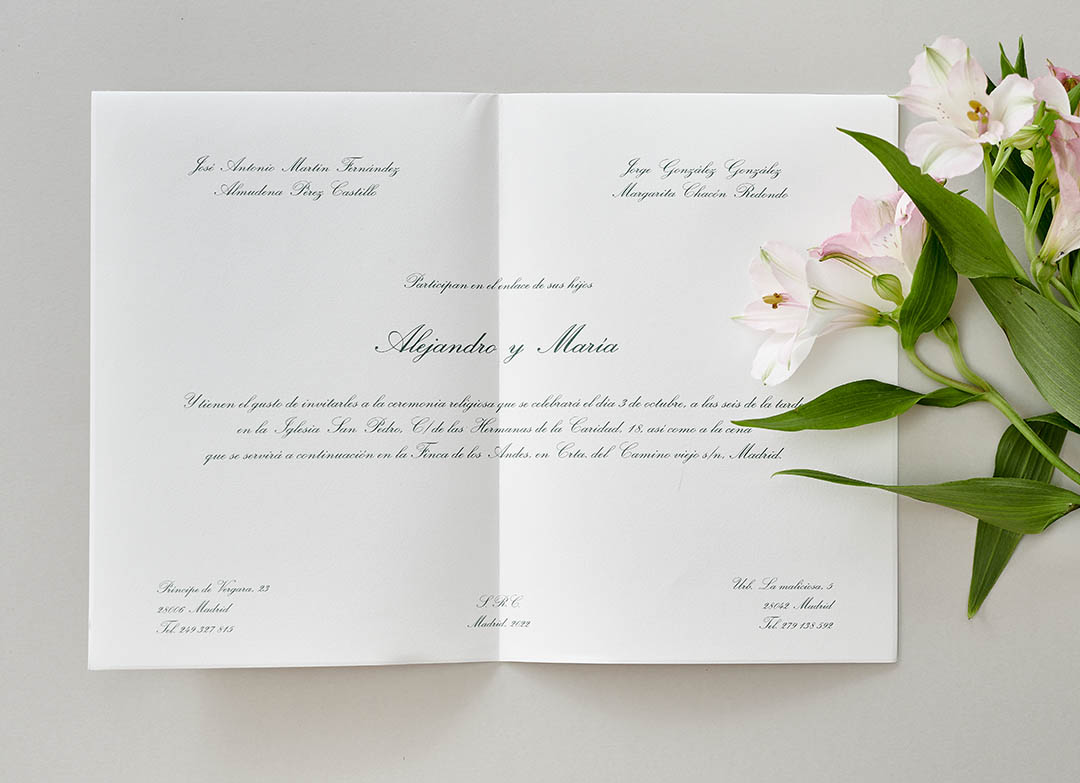 José Antonio Martín Fernández
Almudena Pérez Castillo
Jorge González González
Margarita Chacón Redondo
Participan en el enlace de sus hijos
Alejandro y María
Y tienen el gusto de invitarles a la ceremonia religiosa que se celebrará el día 3 de octubre, a las seis de la tarde
en la Iglesia San Pedro, C/ de las Hermanas de la Caridad, 18, así como a la cena
que se servirá a continuación en la Finca de los Andes, en Crta. del Camino viejo s/n, Madrid.
Príncipe de Vergara, 23
28006 Madrid
Tel. 249 327 815
S.R.C.
Madrid, 2022
Urb. La maliciosa, 5
28042 Madrid
Tel. 279 138 592